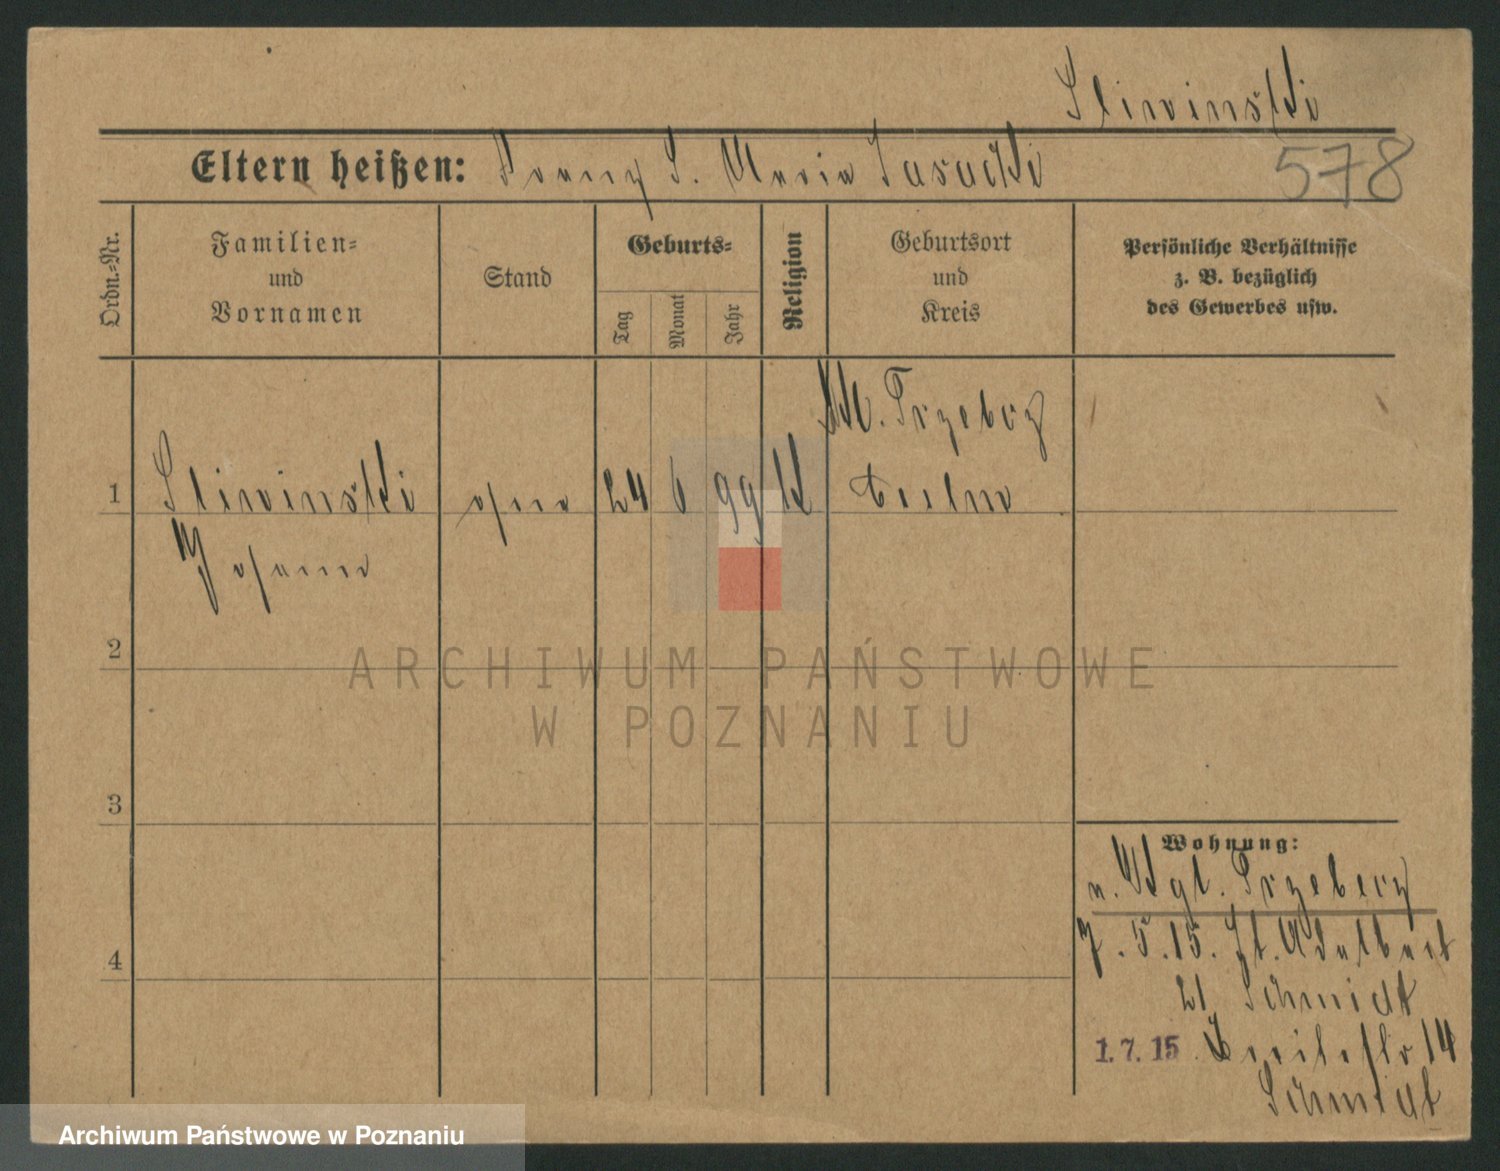 Sliwinski
Eltern heißen: Franz S. Maria
578
Ordn.-Nr.
Familien-
und
Vornamen
Stand
Geburts-
Tag
Monat
Jahr
Religion
Geburtsort
und
Kreis
Persönliche Verhältnisse
z. B. bezüglich
des Gewerbes usw.
1 Sliwinski 24 6 99 K
Johann
2
3
4
ARCHIWUM PAŃSTWOWE
W POZNANIU
Wohnung:
7.5.15. St. Adalbert
21 Schmidt
1.7.15 Breitestr 14
Schmidt
Archiwum Państwowe w Poznaniu